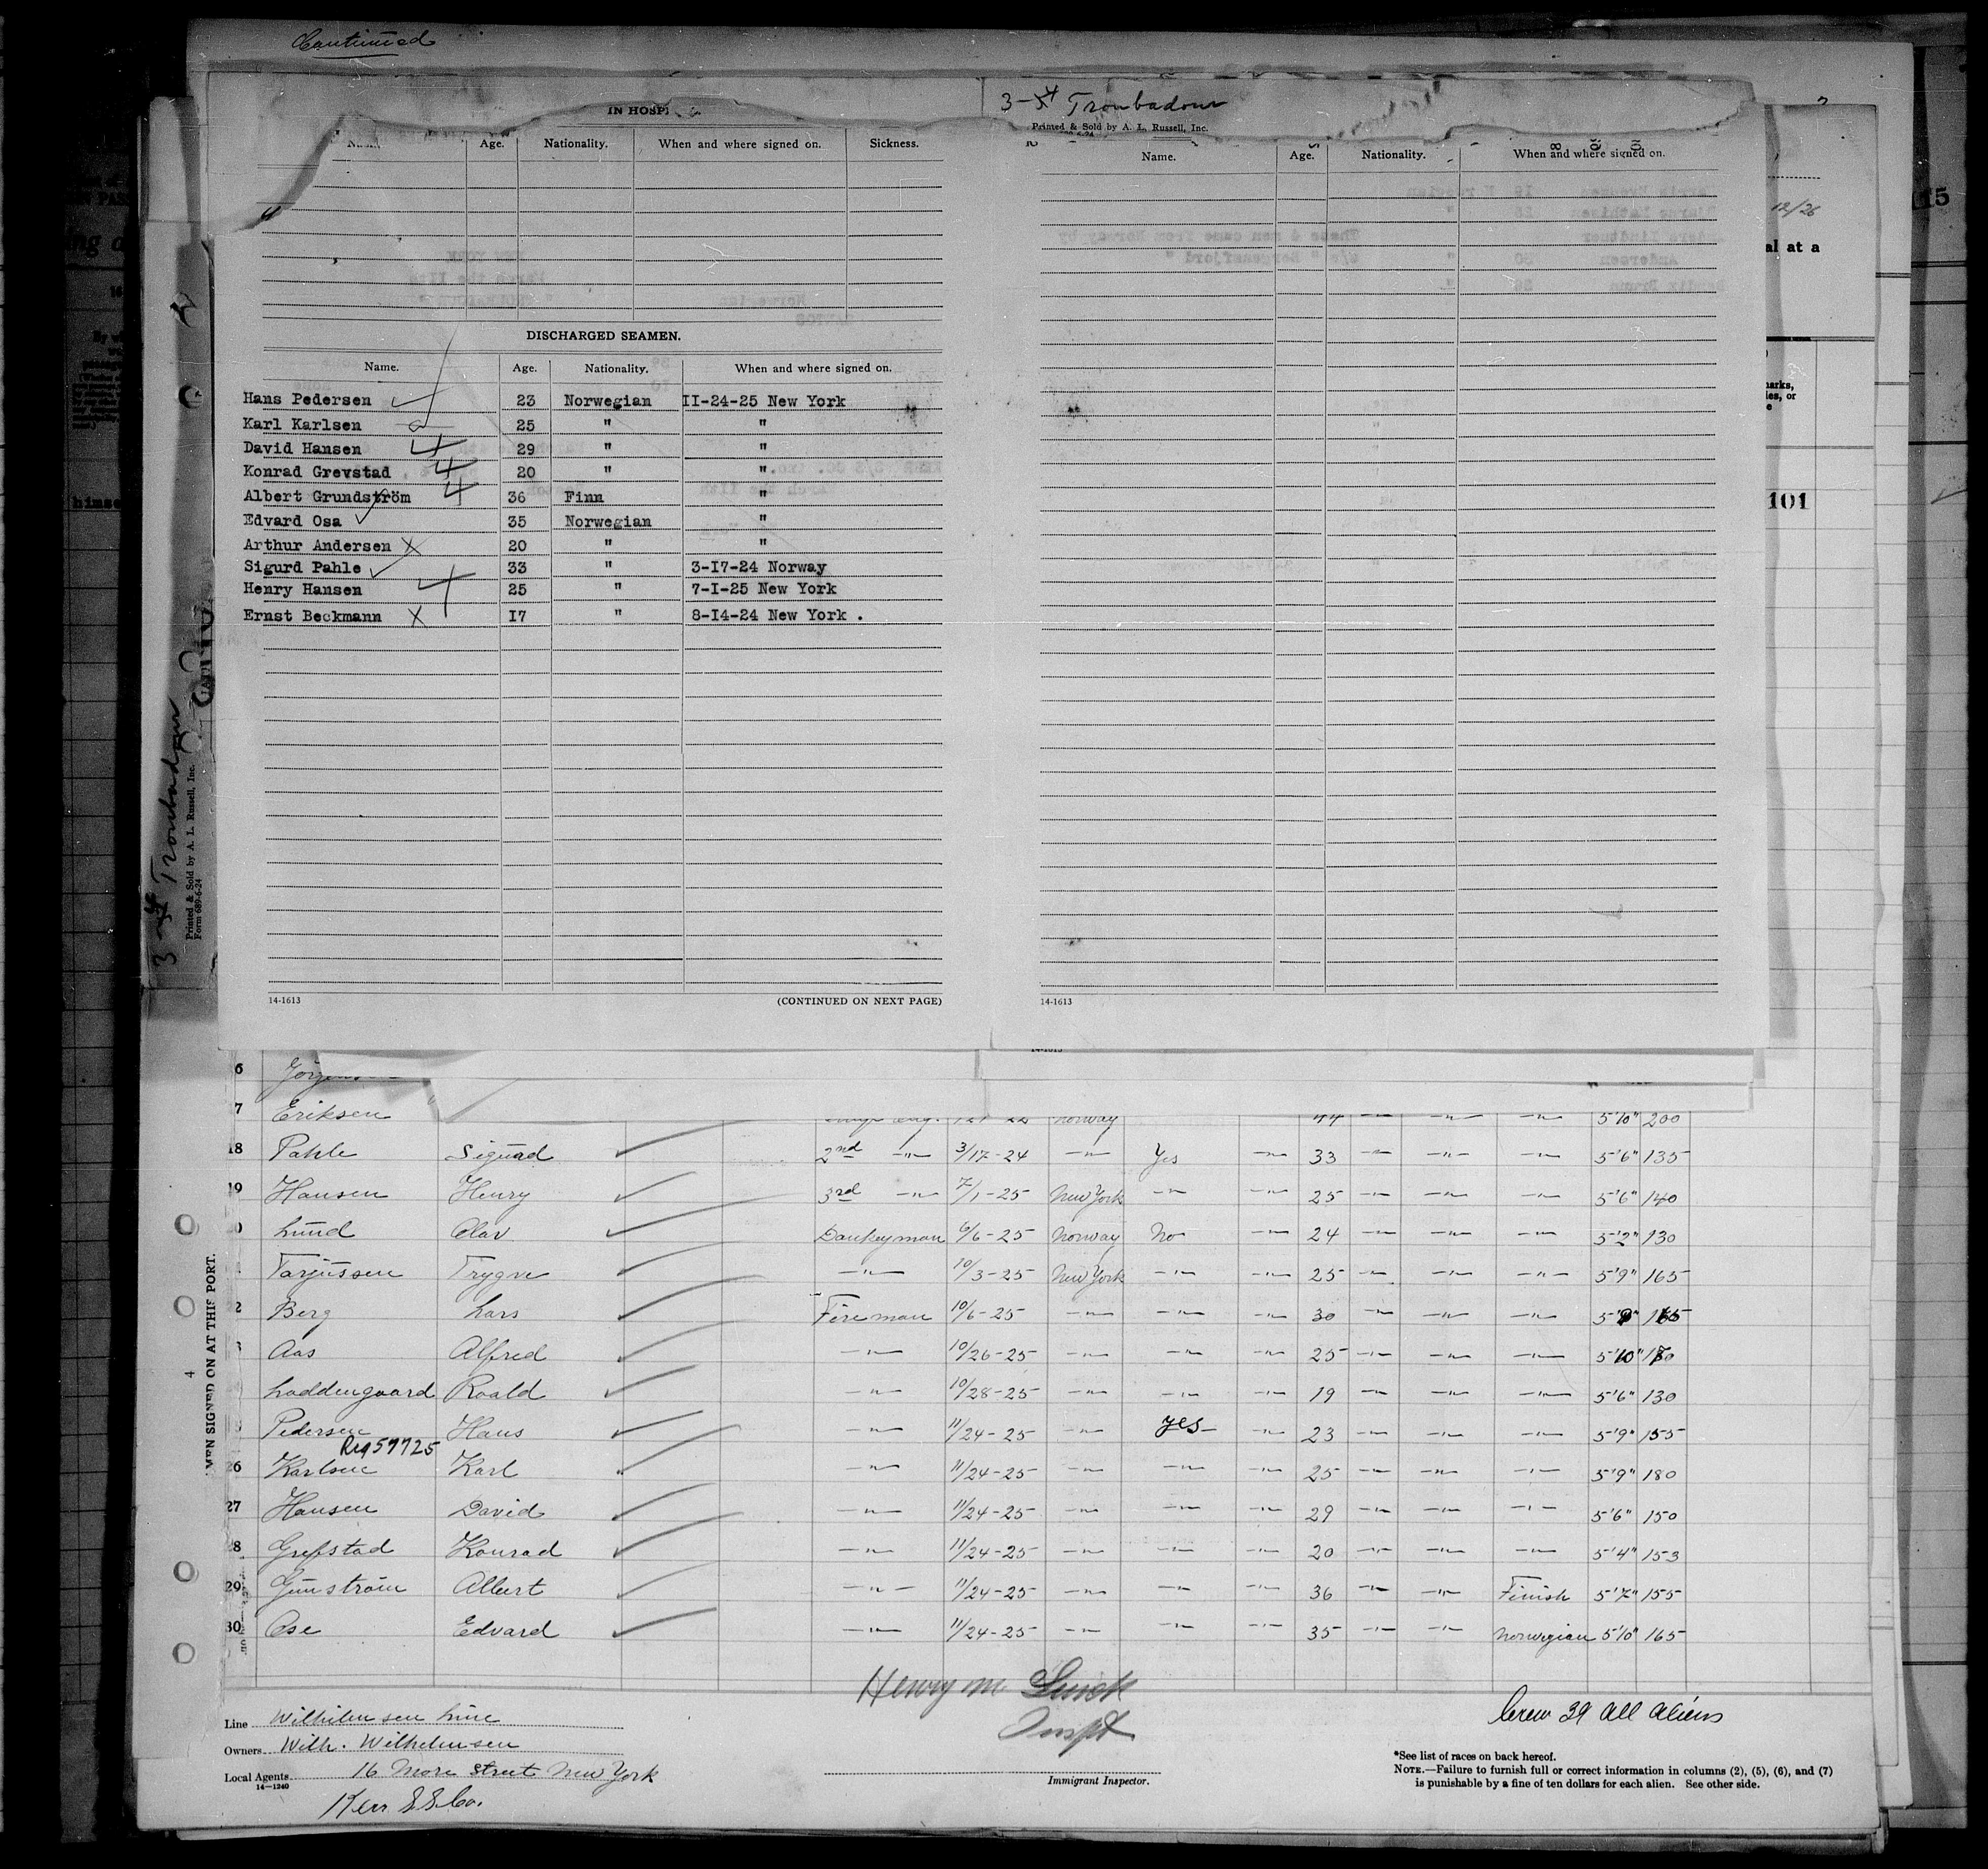 Continued
3-4 Troubadour
Printed & Sold by A. L. Russell, Inc.
IN HOSPI
Age. Nationality. When and where signed on. Sickness.
Name. Age. Nationality. When and where signed on.
DISCHARGED SEAMEN.
Name. Age. Nationality. When and where signed on.
Hans Pedersen 23 Norwegian II-24-25 New York
Karl Karlsen 25 " "
David Hansen 29 " "
Konrad Grevstad 20 " "
Albert Grundström 36 Finn "
Edvard Osa 35 Norwegian "
Arthur Andersen X 20 " "
Sigurd Pahle 33 " 3-I7-24 Norway
Henry Hansen 25 " 7-I-25 New York
Ernst Beckmann X I7 " 8-I4-24 New York .
14-1613 (CONTINUED ON NEXT PAGE)
14-1613
12/26
al at a
115
101
3-4 Troubadour
Printed & Sold by A. L. Russell, Inc.
Form 689-6-24
MEN SIGNED ON AT THIS PORT.
4
6
7 Eriksen 44 -"- -"- -"- 5'10" 200
18 Pahle Sigurd 2nd -"- 3/17-24 -"- Yes -"- 33 -"- -"- -"- 5'6" 135
19 Hansen Henry 3rd -"- 7/1-25 New York -"- -"- 25 -"- -"- -"- 5'6" 140
Lund Olav Donkeyman 6/6-25 Norway No -"- 24 -"- -"- -"- 5'2" 130
Tarjussen Trygve -"- 10/3-25 New York -"- -"- 25 -"- -"- -"- 5'9" 165
2 Berg Lars Fireman 10/6-25 -"- -"- -"- 30 -"- -"- -"- 5'9" 165
Aas Alfred -"- 10/26-25 -"- -"- -"- 25 -"- -"- -"- 5'10"
Loddengaard Roald -"- 10/28-25 -"- -"- -"- 19 -"- -"- -"- 5'6" 130
Pedersen Hans -"- 11/24-25 -"- yes -"- 23 -"- -"- -"- 5'9" 155
Reg 57725
26 Karlsen Karl -"- 11/24-25 -"- -"- -"- 25 -"- -"- -"- 5'9" 180
27 Hansen David -"- 11/24-25 -"- -"- -"- 29 -"- -"- -"- 5'6" 150
28 Grefstad Konrad -"- 11/24-25 -"- -"- -"- 20 -"- -"- -"- 5'4" 153
29 Gunström Albert -"- 11/24-25 -"- -"- -"- 36 -"- -"- Finish 5'7" 155
30 Ose Edvard -"- 11/24-25 -"- -"- -"- 35 -"- -"- Norwegian 5'10" 165
Henry M
Inspt
Immigrant Inspector.
Line Wilhelmsen Line
Owners Wilh. Wilhelmsen
Local Agents 16 More Street New York
14-1240
Kerr S S Co.
Crew 39 all aliens
*See list of races on back hereof.
NOTE.—Failure to furnish full or correct information in columns (2), (5), (6), and (7)
is punishable by a fine of ten dollars for each alien. See other side.